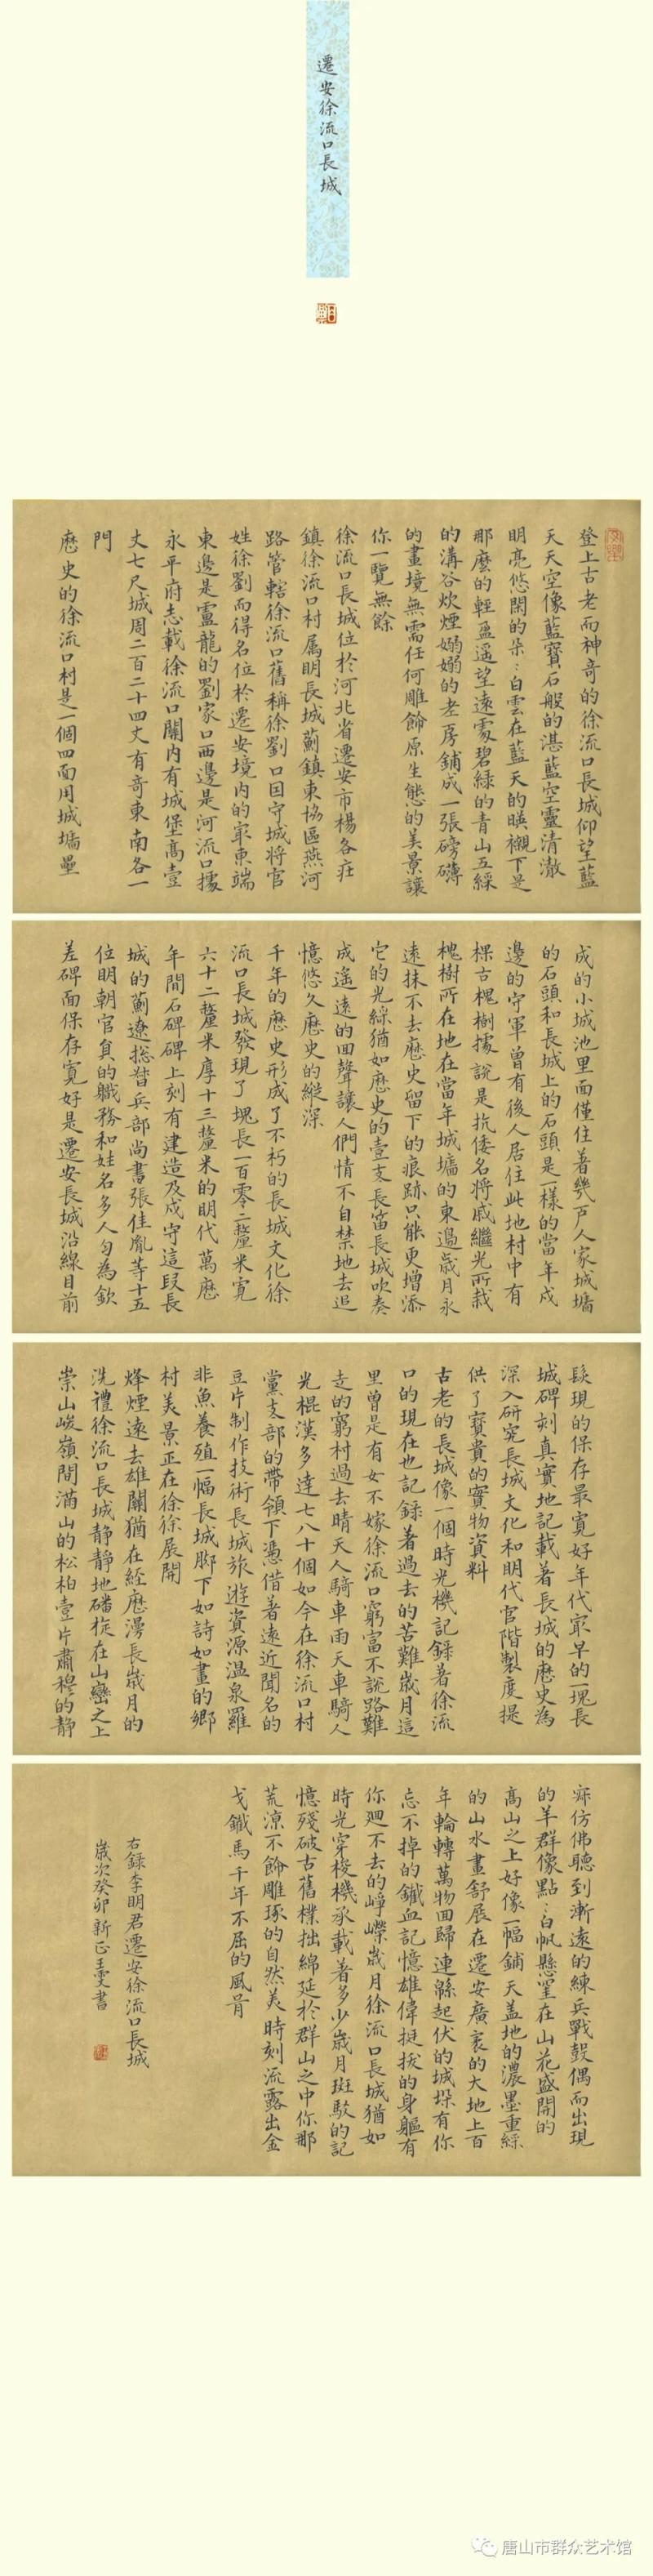 遷安徐流口長城
登上古老而神奇的徐流口長城仰望藍
天天空像藍寶石般的湛藍空靈清澈
明亮悠閑的朵:白雲在藍天的暎襯下是
那麽的輕盈遥望遠處碧緑的青山五綵
的溝谷炊煙嫋嫋的老房鋪成一張磅礴
的畫境無需任何雕飾原生態的美景讓
你一覽無餘
徐流口長城位於河北省遷安市楊各莊
鎮徐流口村属明長城薊鎮東協區燕河
路管轄徐流口舊稱徐劉口因守城将官
姓徐劉而得名位於遷安境内的冣東端
東邊是盧龍的劉家口西邊是河流口據
永平府志載徐流口關内有城堡高壹
丈七尺城周二百二十四丈有奇東南各一
門
歷史的徐流口村是一個四面用城墻壘
成的小城池里面僅住著幾户人家城墻
的石頭和長城上的石頭是一樣的當年戍
邊的守軍曾有後人居住此地村中有
棵古槐樹據說是抗倭名将戚繼光所栽
槐樹所在地在當年城墻的東邊歲月永
遠抹不去歷史留下的痕跡只能更增添
它的光綵猶如歷史的壹支長笛長城吹奏
成遙遠的回聲讓人們情不自禁地去追
憶悠久歷史的縱深
千年的歷史形成了不朽的長城文化徐
流口長城發現了塊長一百零二釐米寬
六十二釐米厚十三釐米的明代萬曆
年間石碑碑上刻有建造及戍守這段長
城的薊遼總督兵部尚書張佳胤等十五
位明朝官員的職務和姓名多人勻為欽
差碑面保存寬好是遷安長城沿線目前
發現的保存最寬好年代冣早的一塊長
城碑刻真實地記載著長城的歷史為
深入研究長城文化和明代官階製度提
供了寶貴的實物資料
古老的長城像一個時光機記録著徐流
口的現在也記録著過去的苦難歲月這
里曾是有女不嫁徐流口窮富不說路難
走的窮村過去晴天人騎車雨天車騎人
光棍漢多達七八十個如今在徐流口村
黨支部的帶領下憑借著遠近聞名的
豆片制作技術長城旅遊資源溫泉羅
非魚養殖一幅長城脚下如詩如畫的鄉
村美景正在徐徐展開
烽煙遠去雄關猶在經歷漫長歲月的
洗禮徐流口長城静静地磻桓在山巒之上
崇山峻嶺間滿山的松柏壹片肅穆的靜
寂仿佛聽到漸遠的練兵戰鼓偶而出現
的羊群像點:白帆懸罣在山花盛開的
高山之上好像一幅鋪天盖地的濃墨重綵
的山水畫舒展在遷安廣袤的大地上百
年輪轉萬物回歸連緜起伏的城垜有你
忘不掉的鐵血記憶雄偉挺拔的身軀有
你迴不去的崢嶸歲月徐流口長城猶如
時光穿梭機承載著多少歲月斑駁的記
憶殘破古舊樸拙綿延於群山之中你那
荒涼不飾雕琢的自然美時刻流露出金
戈鐵馬千年不屈的風骨
右録李明君遷安徐流口長城
歲次癸卯新正王雯書
唐山市群众艺术馆